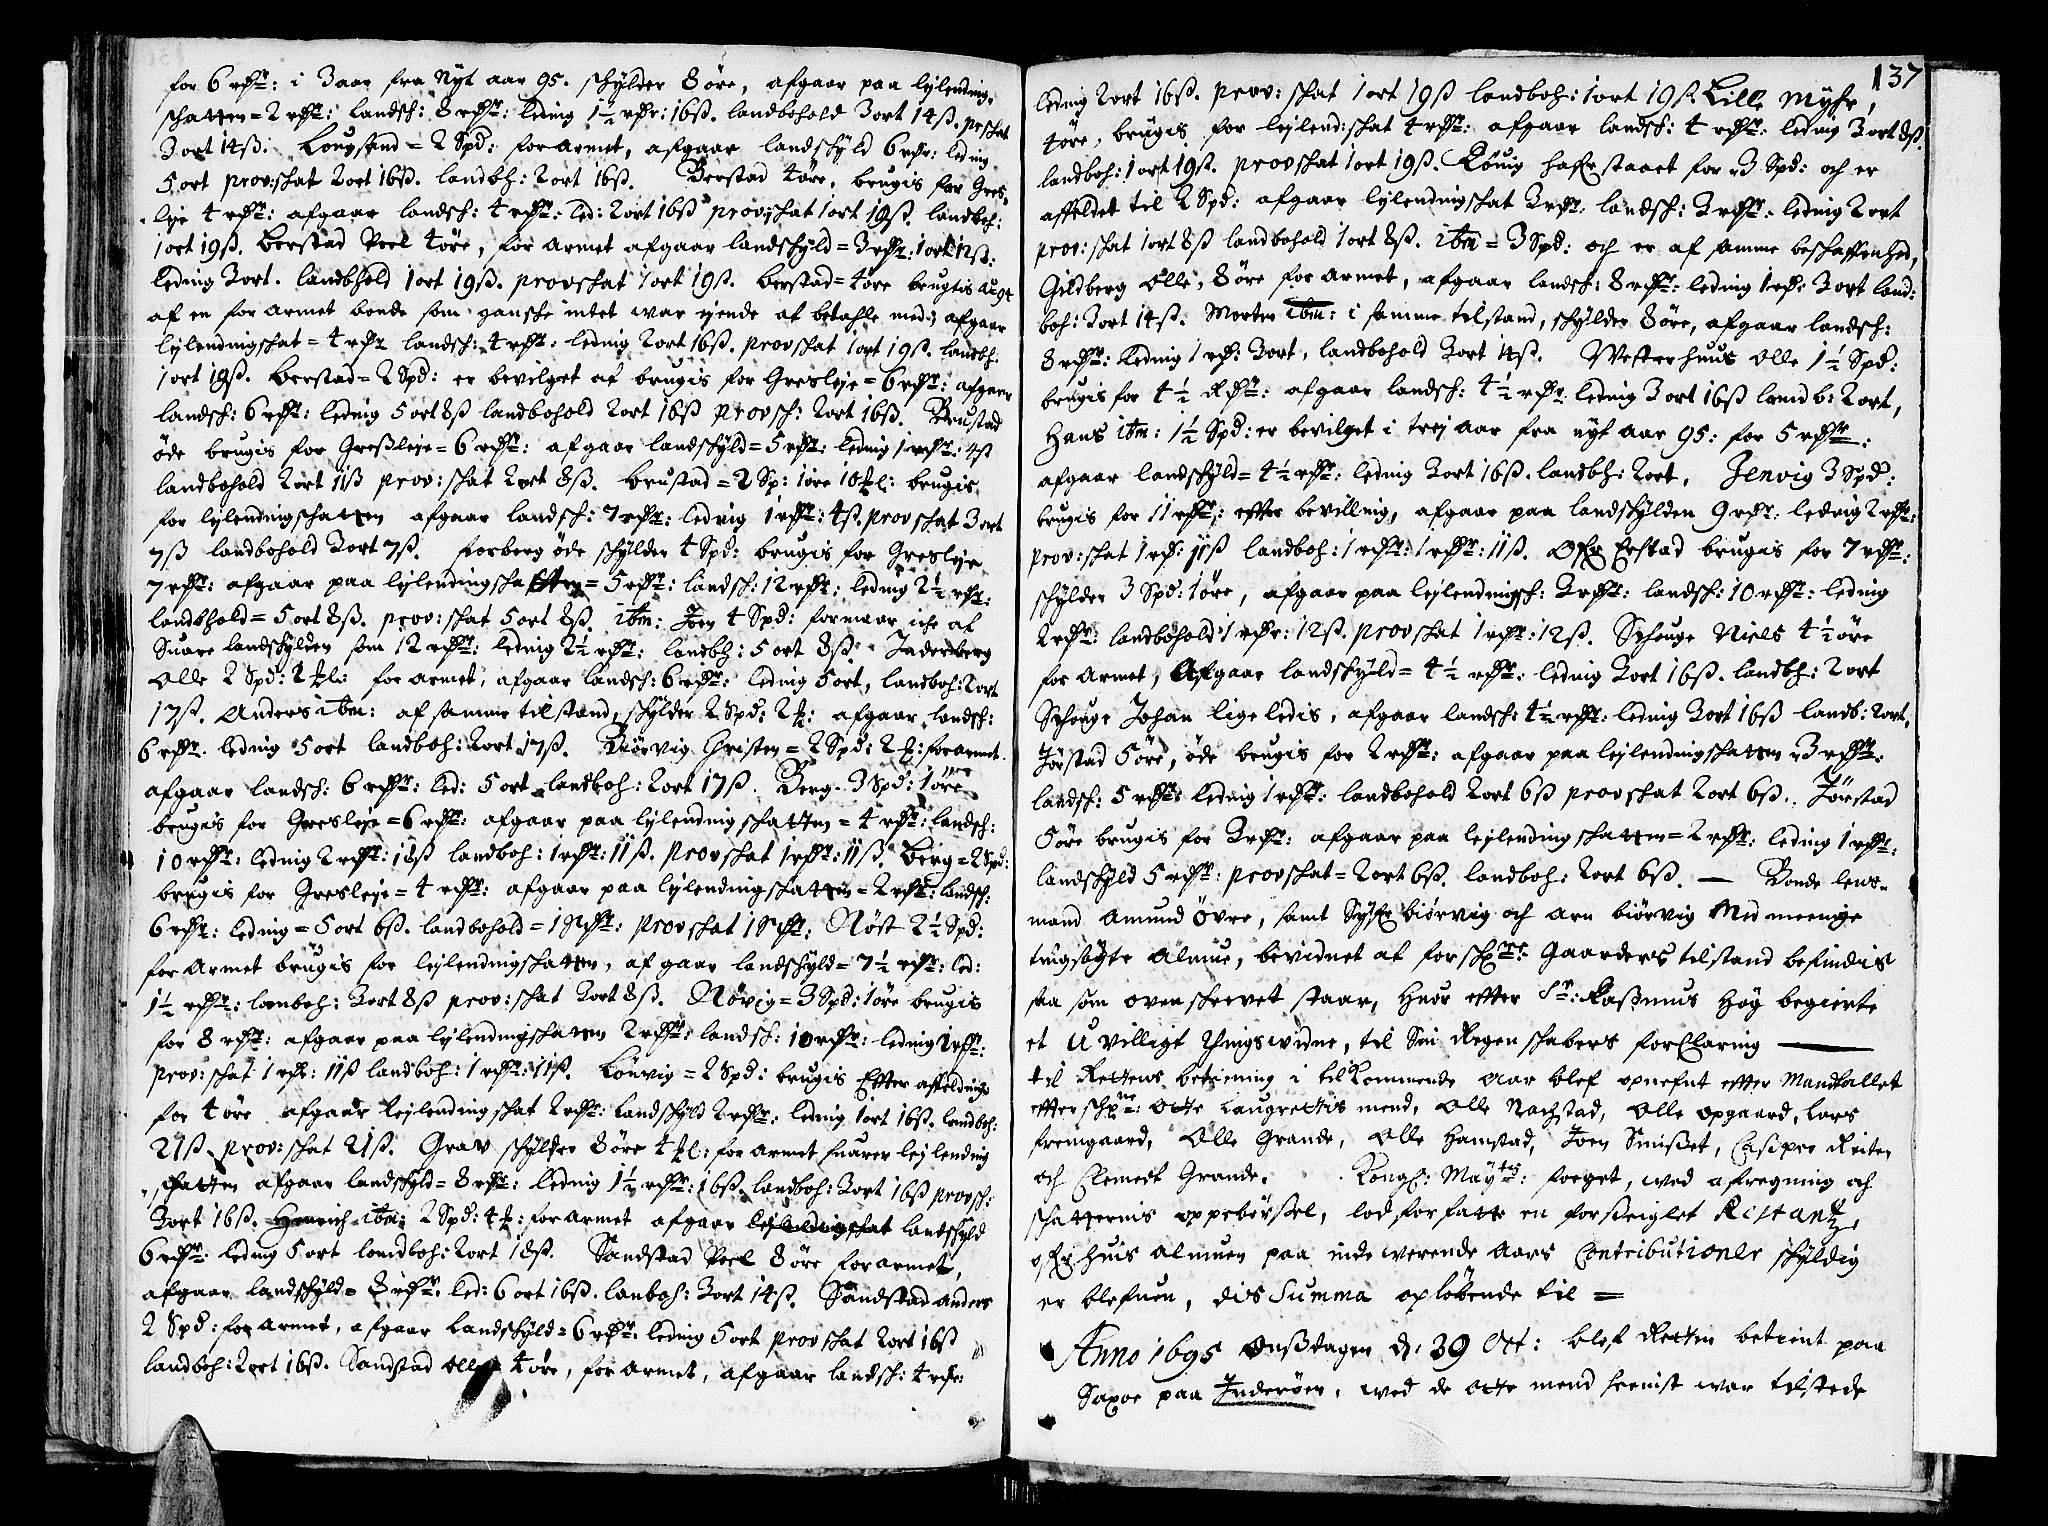 for 6 rdr: i 3 aar fra Nyt aar 95. schylder 8 öre, afgaar paa leylending
schatten = 2 rdr: landsch: 8 rdr: leding 1½ rdr: 16ß. landbohold 3 ort 14ß. prschat
3 ort 14ß. Lougsand = 2 Spd: forarmet, afgaar landschyld 6 rdr: leding
5 ort prov:schat 2 ort 16ß. landbh: 2 ort 16ß. Berstad 4 öre, brugis for Gres,
leje 4 rdr: afgaar landsch: 4 rdr: led: 2 ort 16ß prov:schat 1 ort 19ß. landboh:
1 ort 19ß. Berstad Peel 4 öre, for armet afgaar landschyld = 3 rdr: 1 ort 12ß:
leding 3 ort. landbhold 1 ort 19ß. provschat 1 ort 19ß. Berstad = 4 öre brugtis
af en for armet bonde som gansche intet war ejende at betahle med; afgaar
leylendingschat = 4 rdr landsch: 4 rdr: leding 2 ort 16ß. provschat 1 ort 19ß. landbh:
1 ort 19ß. Berstad = 2 Spd: er bevilget at brugis for Gresleje = 6 rdr: afgaar
landsch: 6 rdr: leding 5 ort 8ß landbohold 2 ort 16ß provsch: 2 ort 16ß. Brustad
öde brugis for Gresßleje = 6 rdr: afgaar landschyld = 5 rdr: leding 1 rdr: 4ß
landbohold 2 ort 11ß prov:schat 2 ort 8ß. Brustad = 2 Sp: 1 öre 10 l: brugis
for leylendingschatten afgaar landsch: 7 rdr: leding 1 rdr: 4ß. provschat 3 ort
7ß landbohold 3 ort 7ß. Forberg öde schylder 4 Spd: brugis for Gresleje
7 rdr: afgaar paa leylendingschatten = 5 rdr: landsch: 12 rdr: leding 2½ rdr:
landbhold = 5 ort 8ß. prov:schat 5 ort 8ß. ibm: Joen 4 Spd: formaar iche at
Suare landschylden som 12 rdr: leding 2½ rdr: landbh: 5 ort 8ß. Inderberg
Olle 2 Spd: 2 l: for armet, afgaar landsch: 6 rdr: leding 5 ort, landboh: 2 ort
17ß. Anders ibm: af samme tilstand, schylder 2 Spd: 2 : afgaar landsch:
6 rdr. leding 5 ort landboh: 2 ort 17ß. Biörvig Christen = 2 Spd: 2 : forarmet.
afgaar landsch: 6 rdr: led: 5 ort landboh: 2 ort 17ß. Berg. 3 Spd: 1 öre
brugis for Gresleje = 6 rdr: afgaar paa leylendingschatten = 4 rdr: landsch:
10 rdr: leding 2 rdr: 18ß landboh: 1 rdr: 11ß. provschat 1 rdr: 11ß. Berg = 2 Spd:
brugis for Gresleje = 4 rdr: afgaar paa leylendingschatten = 2 rdr: landsch:
6 rdr: leding = 5 ort 6ß. landbohold = 1 Rdr: provschat 1 Rdr: Röst 2½ Spd:
for Armet brugis for leylendingschatten, afgaar landschyld = 7½ rdr: led:
1½ rdr: lanboh: 3 ort 8ß prov:schat 3 ort 8ß. Rövig = 3 Spd: 1 öre brugis
for 8 rdr: afgaar paa leylendingschatten 2 rdr: landsch: 10 rdr: leding 2 rdr:
prov:schat 1 rdr: 11ß landboh: 1 rdr: 11ß. Löuvig = 2 Spd: brugis Efter affelding
for 4 öre afgaar leylendingschat 2 rdr: landschyld 2 rdr: leding 1 ort 16ß. landboh:
21ß prov:schat 21ß. Grav schylder 8 öre 4 l: for armet suarer leylending
schatten afgaar landschyld = 8 rdr: leding 1½ rdr: 16ß. landboh: 3 ort 16ß provsch:
3 ort 16ß. Henrich ibm: 2 Spd: 4 : for armet afgaar leylendingschat landschyld
6 rdr: leding 5 ort landboh: 2 ort 18ß. Sandstad Peel 8 öre forarmet,
afgaar landschyld = 8 rdr. led: 6 ort 16ß. lanboh: 3 ort 14ß. Sandstad anders
2 Spd: for armet, afgaar Landschyld = 6 rdr. leding 5 ort provschat 2 ort 16ß
landboh: 2 ort 16ß. Sandstad Olle 4 öre, for armet, afgaar landsch: 4 rdr:
137
leding 2 ort 16ß. prov:schat 1 ort 19ß landboh: 1 ort 19ß. Lille Myhr,
4 öre, brugis for leylend:schat 4 rdr: afgaar landsch: 4 rdr: leding 3 ort 8ß.
landboh: 1 ort 19ß. provschat 1 ort 19ß. Löuig hafr staaet for 3 Spd: och er
affeldet til 2 Spd: afgaar leylendingschat 3 rdr: landsch: 3 rdr: leding 2 ort
prov:schat 1 ort 8ß landbohold 1 ort 8ß. ibm = 3 Spd: och er af samme beschaffenhed,
Gildberg Olle, 8 öre for armet, afgaar landsch: 8 rdr: leding 1 rdr: 3 ort land:
boh: 3 ort 14ß. Morten ibm: i samme tilstand, schylder 8 öre, afgaar landsch:
8 rdr: leding 1 rdr: 3 ort, landbohold 3 ort 14ß. Westerhuus Olle 1½ Spd:
brugis for 4½ Rdr: afgaar landsch: 4½ rdr leding 3 ort 16ß landb: 2 ort,
Hans ibm: 1½ Spd: er bevilget i trej aar fra nyt aar 95: for 5 rdr:
afgaar landschyld = 4½ rdr: leding 3 ort 16ß. landbh: 2 ort, Jenvig 3 Spd:
brugis for 11 rdr: efter bevilling, afgaar paa landschylden 9 rdr: leding 2 rdr:
prov:schat 1 rdr: 11ß landboh: 1 rdr: 1 rdr: 11ß. Ofr Erstad brugis for 7 rdr:
schylder 3 Spd: 1 öre, afgaar paa leylendingsch: 3 rdr: landsch: 10 rdr: leding
2 rdr: landbohold 1 rdr: 12ß. provschat 1 rdr: 12ß. Schouge Niels 4½ öre
for Armet, Afgaar landschyld = 4½ rdr: leding 3 ort 16ß. landbh: 2 ort
Schouge Johan ligeledis, afgaar landsch: 4½ rdr: leding 3 ort 16ß landb: 2 ort,
Jörstad 5 öre, öde brugis for 2 rdr: afgaar paa leylendingschatten 3 rdr:
landsch: 5 rdr: leding 1 rdr: landbohold 2 ort 6ß provschat 2 ort 6ß. Jörstad
5 öre brugis for 3 rdr: afgaar paa leylendingschatten = 2 rdr: leding 1 rdr:
landschyld 5 rdr: provschat = 2 ort 6ß. landboh: 2 ort 6ß. — Bonde lens-
mand Amund övre, samt Sifr biörvig och arn biörvig Med meenige
tingsögte Almue, bevidnet at forschrne: Gaarders tilstand befindis
saa som ovenschrevet staar, Huor efter Sr: Raßmus Høg begierte
et uvilligt tingswidne, til Sin Regenschabers forClaring —
til Rettens betiening i tilkommende Aar blef opnefnt efter Mandtallet
efterschrne: Otte Laugrettis mend, Olle Nachstad, Olle opgaard, Lars
fremgaard, Olle Grande, Olle Hamstad, Joen Smißet, Casper Reiter
och Clemedt Grande. Kongl: Mayts: foeget, wed afregning och
schatternis oppebörßel, lod forfatte en forseiglet Restantz,
ofr huis almuen paa indewerende Aars Contributioner schyldig
er blefuen, dis Summa opløbende til =
Anno 1695 Onßdagen d. 39 Oct: blef Retten betient paa
Saxoe paa Inderöen, wed de otte mend seenist war tilstede